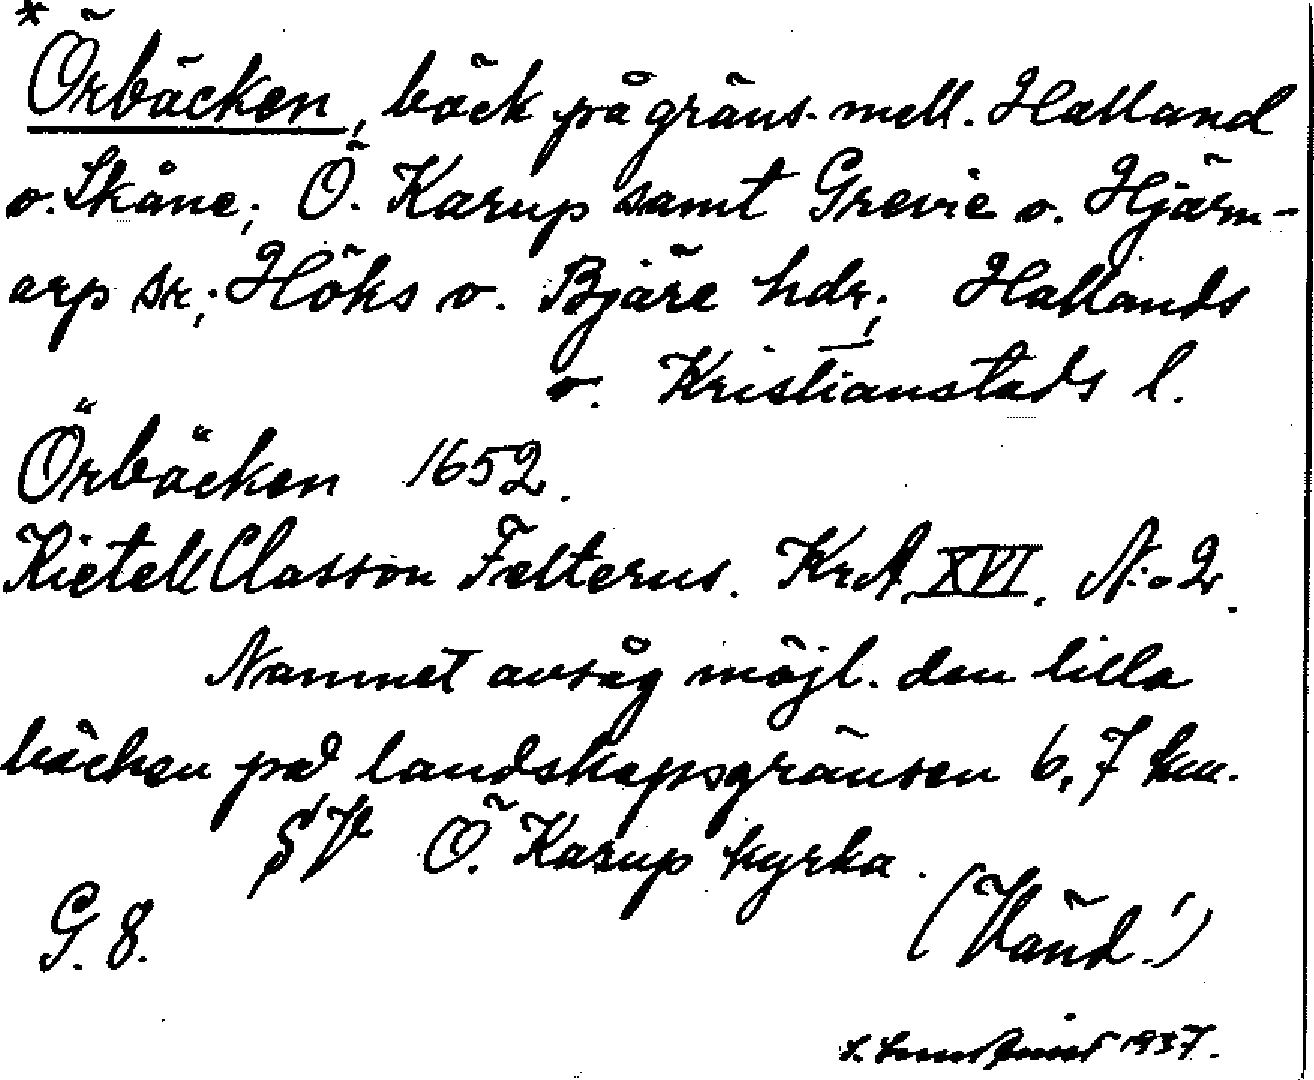 * Örbäcken, bäck på gräns. mell. Halland
o. Skåne; Ö. Karup samt Grevie o. Hjärn-
arp sn; Höks o. Bjäre hdr; Hallands
o. Kristianstads l.
Örbäcken 1652.
Kietell Classon Felterus. KrA XVI. N:o 2.
Namnet avsåg möjl. den lilla
bäcken på landskapsgränsen 6,7 km.
SV Ö. Karup kyrka.
G. 8. (Vänd!)
1937.